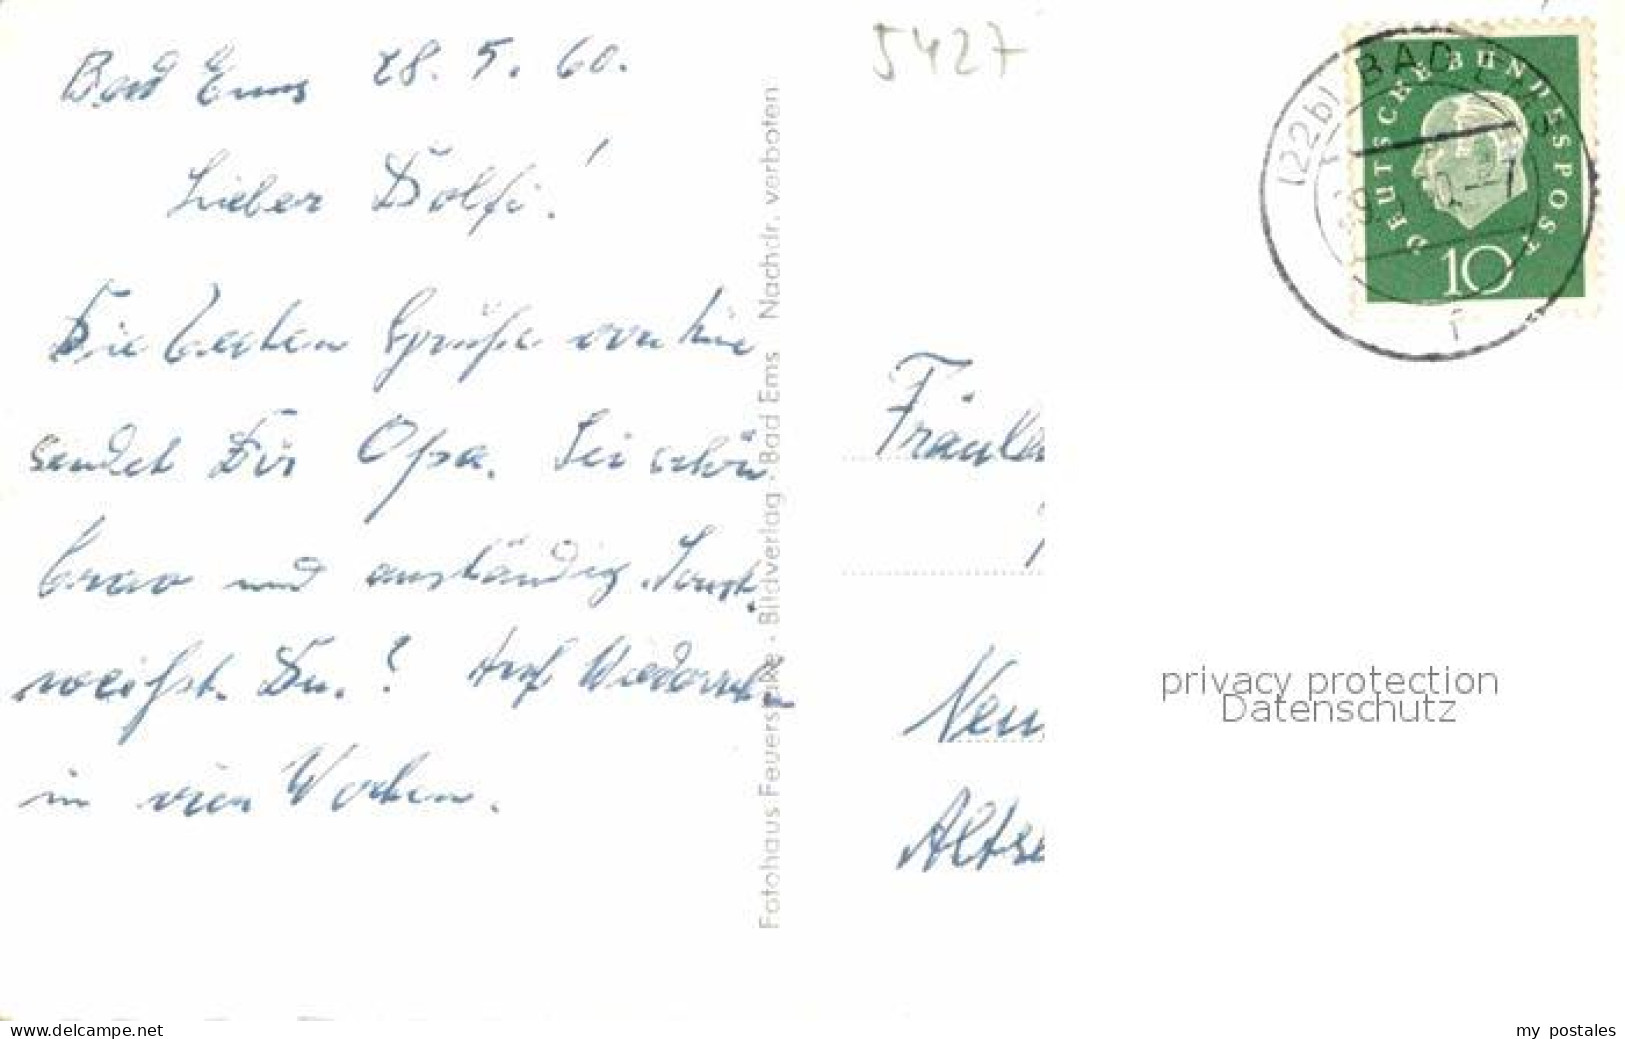 Bad Ems 28. 5. 60.
Lieber Dolfi!
Die besten Grüße von hier
sendet Dir Opa. Sei schön
brav und anständig. Sonst.
weißt Du.? Auf Wiedersehn
in vier Wochen.
Fotohaus Feuerstake · Bildverlag · Bad Ems Nachdr. verboten
5427
(22b) BAD EMS
DEUTSCHE BUNDESPOST
10
f
Fräule
Neu
Altse
privacy protection
Datenschutz
www.delcampe.net
my postales